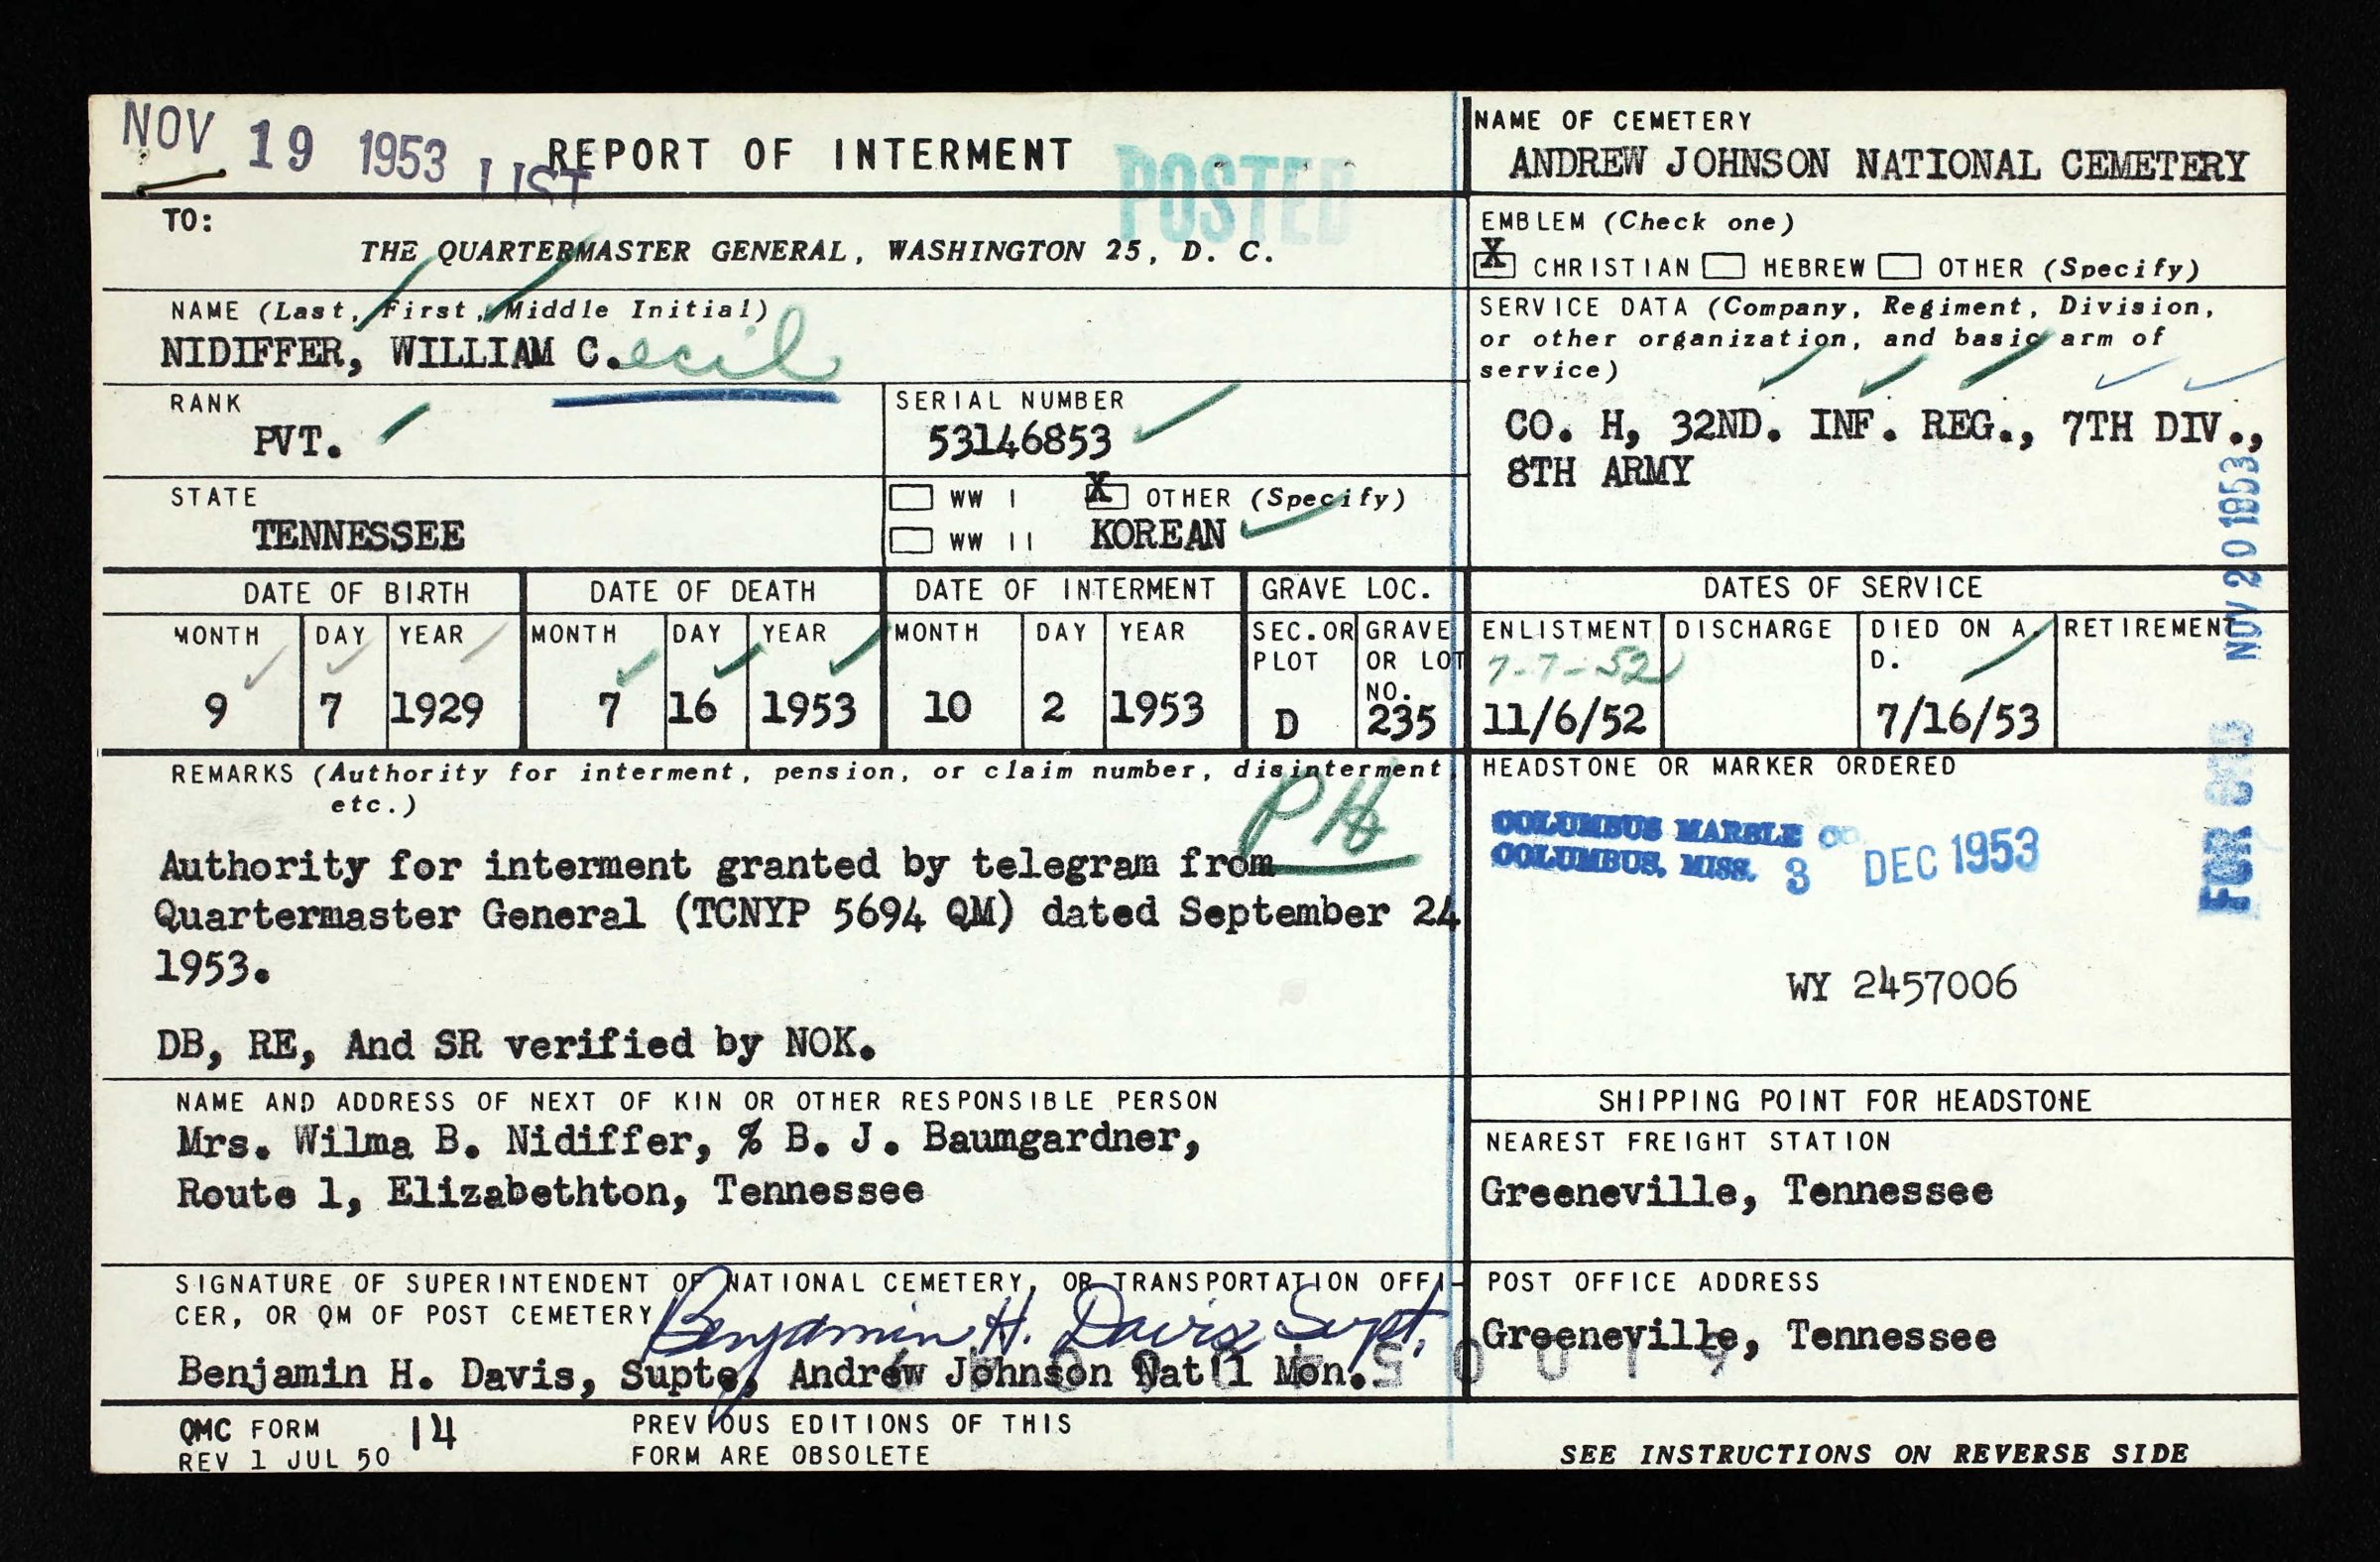 NOV 19 1953 LIST
REPORT OF INTERMENT
POSTED
TO:
THE QUARTERMASTER GENERAL, WASHINGTON 25, D. C.
NAME (Last, First, Middle Initial)
NIDIFFER, WILLIAM C.ecil
RANK
PVT.
SERIAL NUMBER
53146853
STATE
TENNESSEE
WW I X OTHER (Specify)
WW II KOREAN
DATE OF BIRTH DATE OF DEATH DATE OF INTERMENT GRAVE LOC.
MONTH DAY YEAR MONTH DAY YEAR MONTH DAY YEAR SEC. OR PLOT GRAVE OR LOT NO.
9 7 1929 7 16 1953 10 2 1953 D 235
REMARKS (Authority for interment, pension, or claim number, disinterment,
etc.)
PH
Authority for interment granted by telegram from
Quartermaster General (TCNYP 5694 QM) dated September 24
1953.
DB, RE, And SR verified by NOK.
NAME AND ADDRESS OF NEXT OF KIN OR OTHER RESPONSIBLE PERSON
Mrs. Wilma B. Nidiffer, % B. J. Baumgardner,
Route 1, Elizabethton, Tennessee
SIGNATURE OF SUPERINTENDENT OF NATIONAL CEMETERY, OR TRANSPORTATION OFFI-
CER, OR QM OF POST CEMETERY
Benjamin H. Davis Supt.
Benjamin H. Davis, Supt., Andrew Johnson Nat'l Mon.
QMC FORM 14
REV 1 JUL 50
PREVIOUS EDITIONS OF THIS
FORM ARE OBSOLETE
NAME OF CEMETERY
ANDREW JOHNSON NATIONAL CEMETERY
EMBLEM (Check one)
X CHRISTIAN HEBREW OTHER (Specify)
SERVICE DATA (Company, Regiment, Division,
or other organization, and basic arm of
service)
CO. H, 32ND. INF. REG., 7TH DIV.,
8TH ARMY
NOV 20 1953
DATES OF SERVICE
ENLISTMENT DISCHARGE DIED ON A. D. RETIREMENT
7-7-52
11/6/52 7/16/53
HEADSTONE OR MARKER ORDERED
COLUMBUS MARBLE CO
COLUMBUS, MISS. 3 DEC 1953
FOR
WY 2457006
SHIPPING POINT FOR HEADSTONE
NEAREST FREIGHT STATION
Greeneville, Tennessee
POST OFFICE ADDRESS
Greeneville, Tennessee
SEE INSTRUCTIONS ON REVERSE SIDE